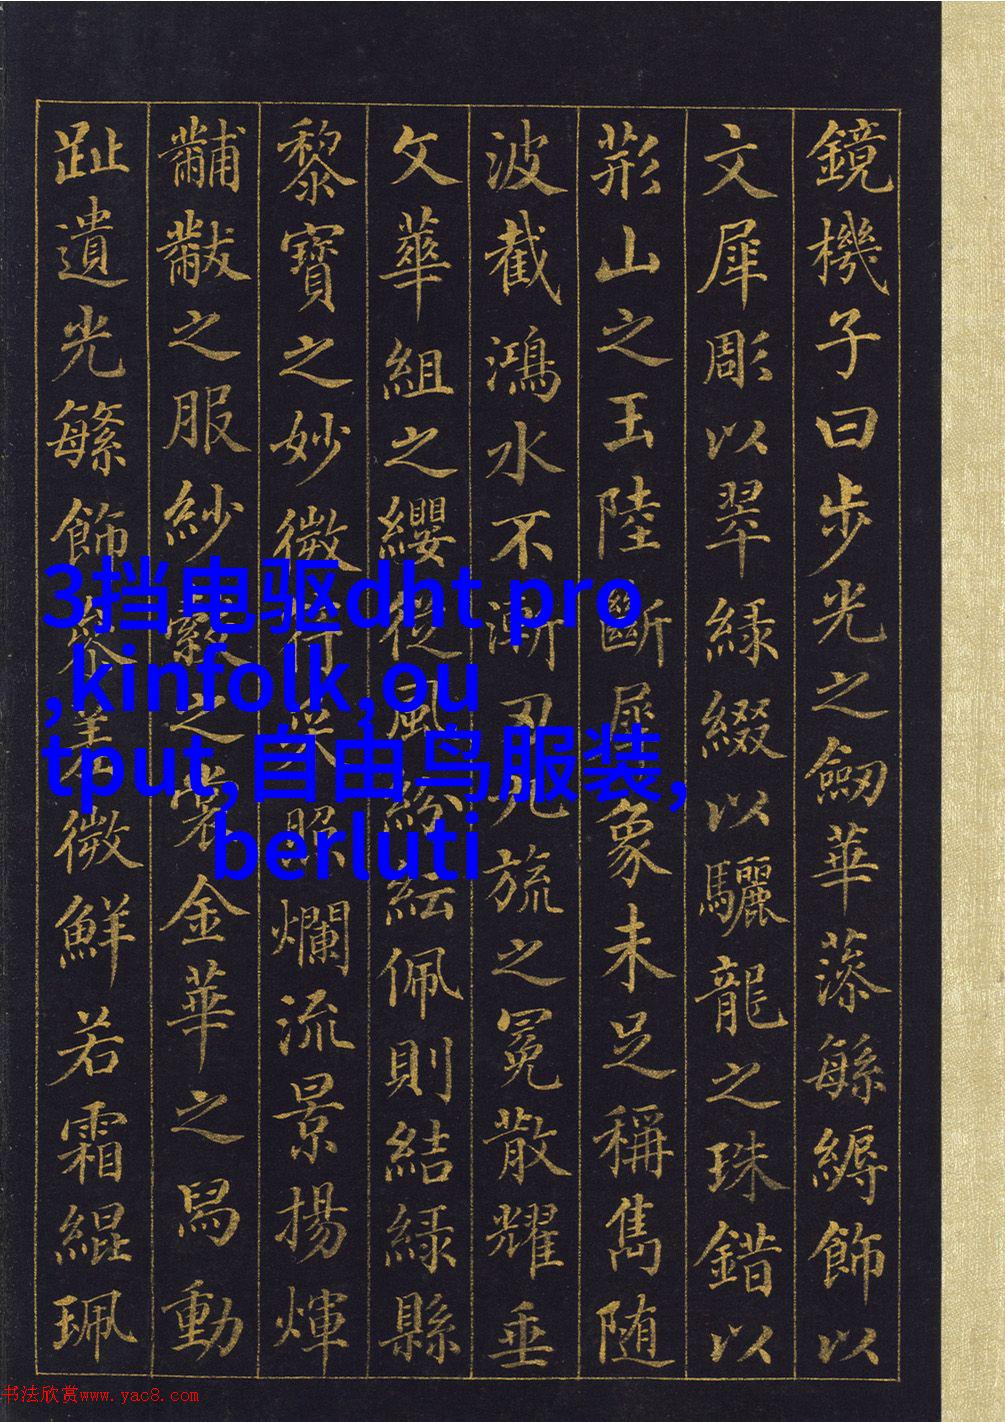 鏡機子曰步光之劒華藻緐縟飾以
文犀彫以翠綠綴以驪龍之珠錯以
荊山之玉陸斷犀象未足稱雋随
波截鴻水不漸刃九旒之冕散耀垂
文華組之纓從風紛紜佩則結綠縣
黎寶之妙微符采照爛流景揚煇
黼黻之服紗縠之裳金華之舄動
趾遺光繁飾參差微鮮若霜緄珮
3挡电驱dht pro
,kinfolk,ou
tput,自由鸟服装,
berluti
书法欣赏www.yac8.com